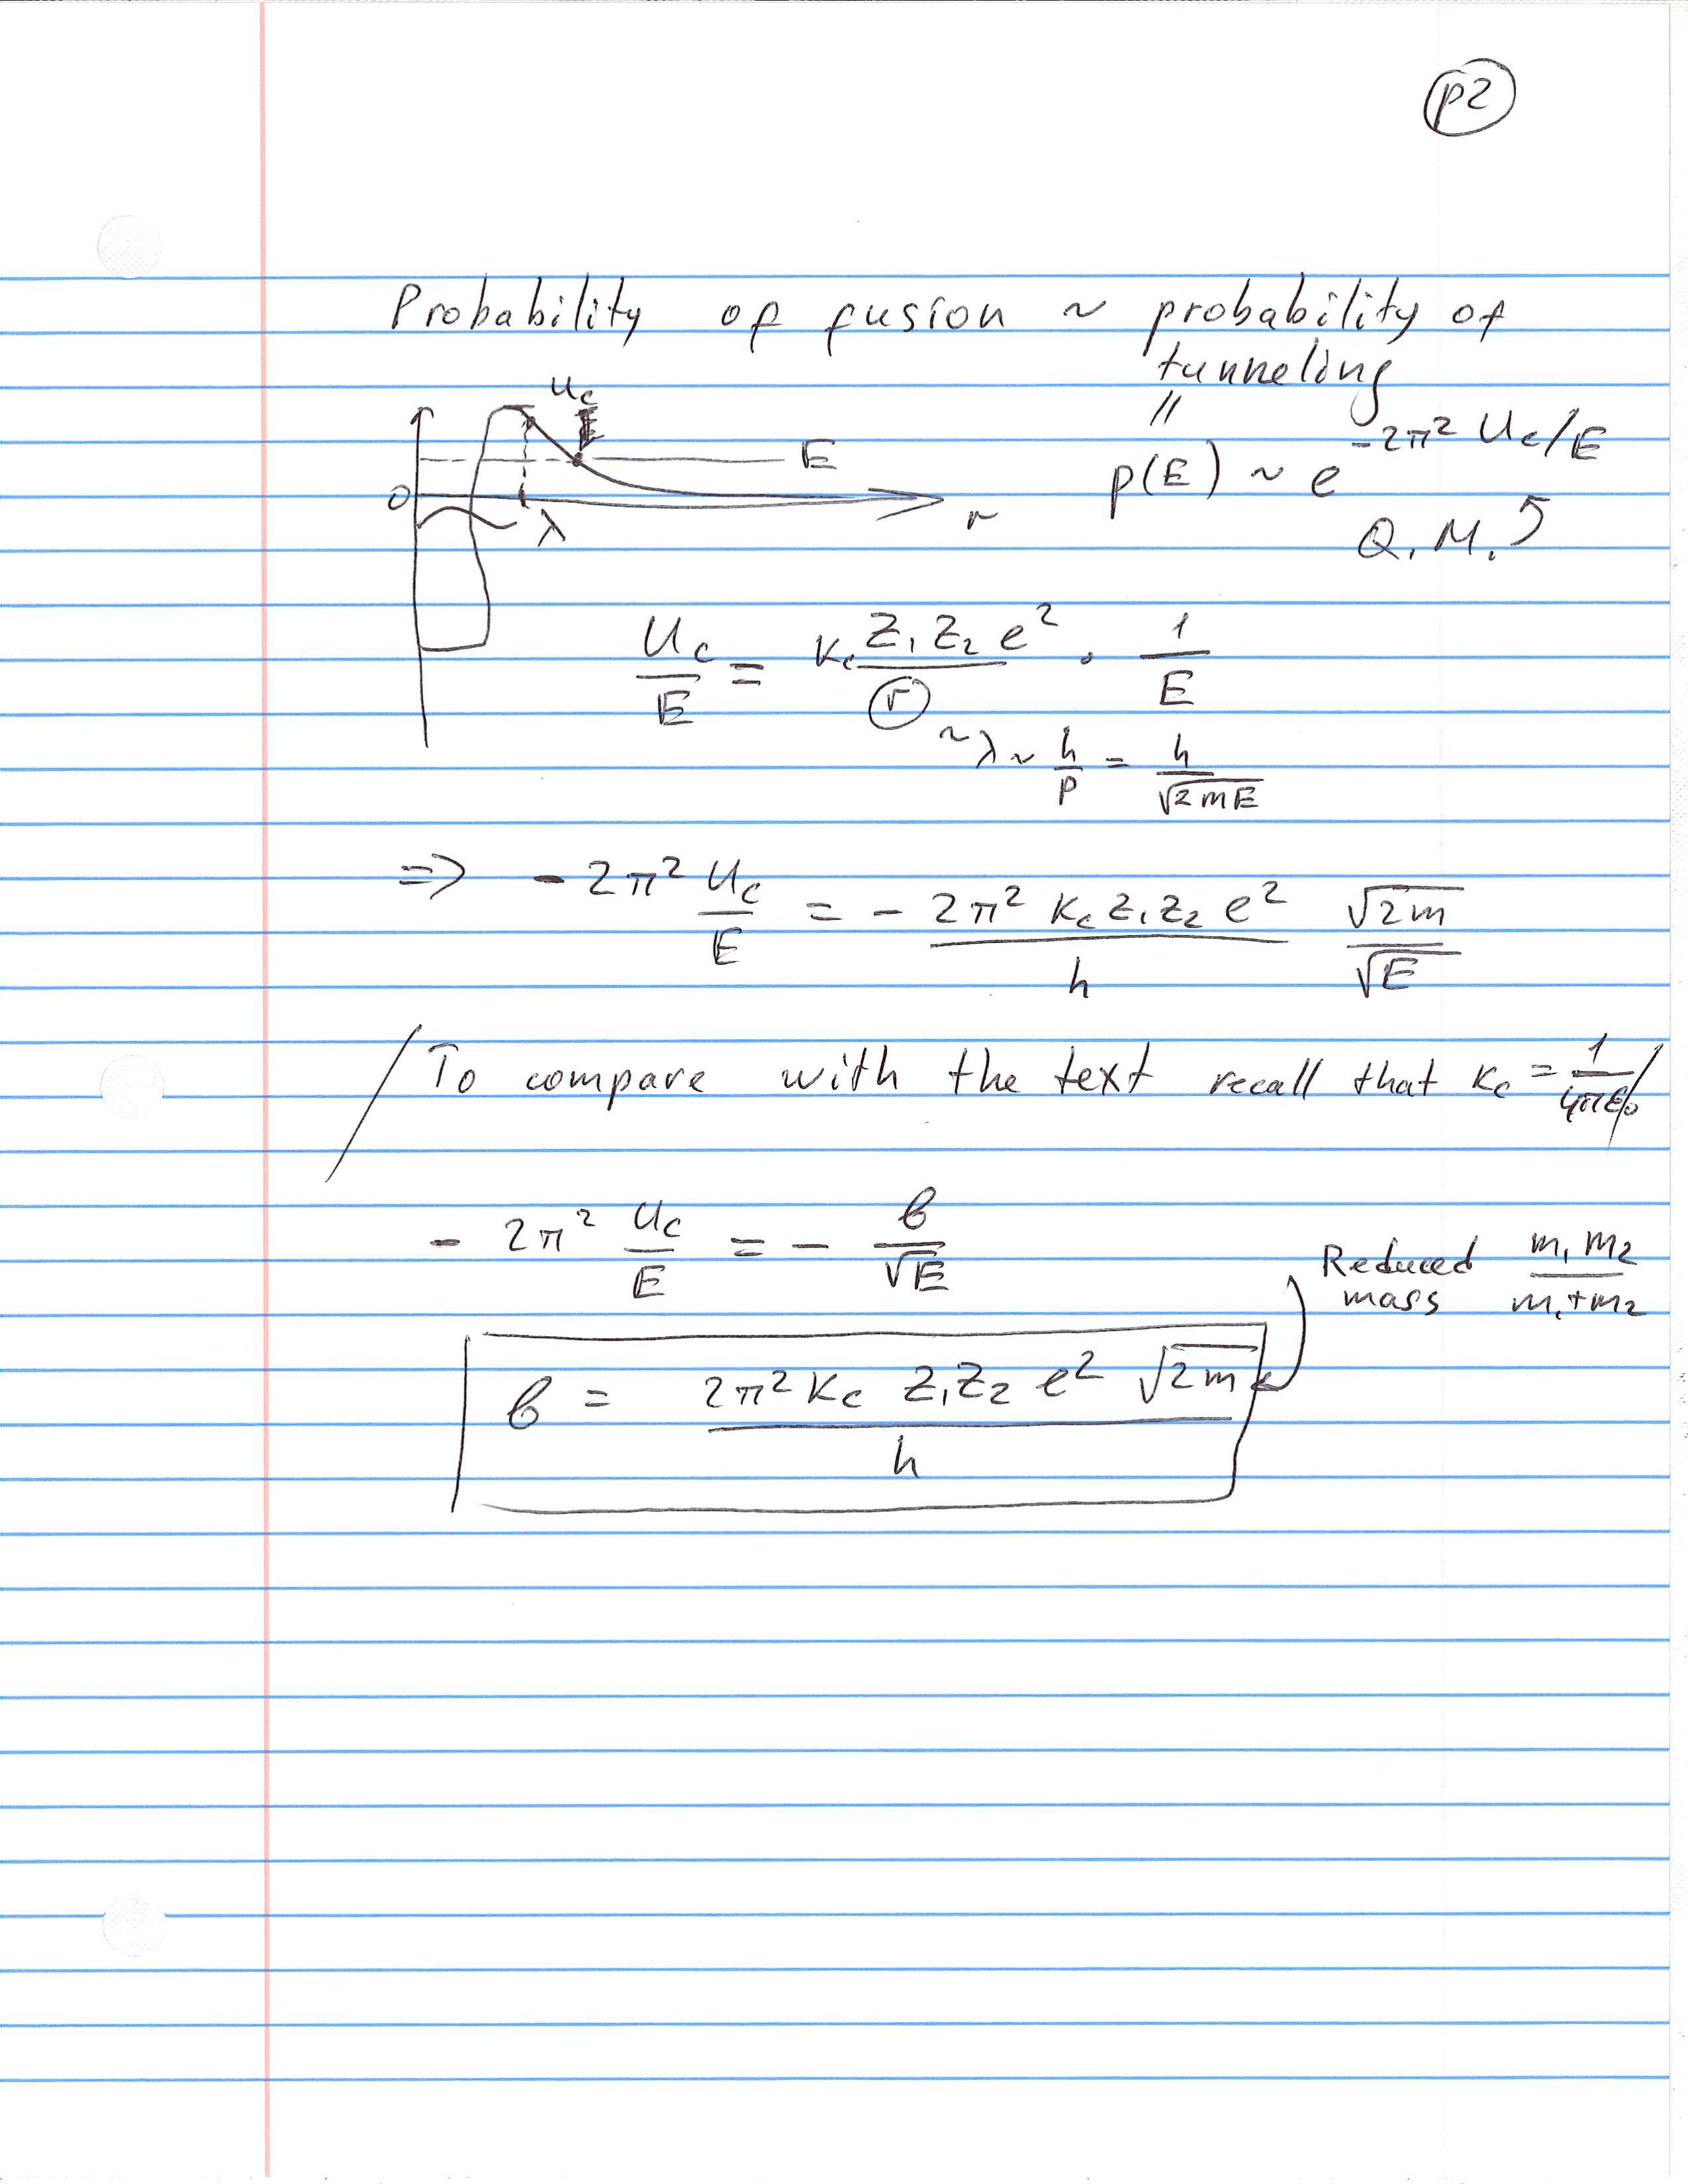 p2
Probability of fusion ~ probability of
tunneling
"
p(E) ~ e^{-2π² Uc/E}
Q.M.
Uc
E
0
r
λ
Uc/E = Kc Z₁Z₂e²/r · 1/E
~ λ ~ h/p = h/√2mE
=> - 2π² Uc/E = - 2π² Kc Z₁Z₂ e²/h √2m/√E
/ To compare with the text recall that Kc = 1/4πε₀ /
- 2π² Uc/E = - b/√E
Reduced mass m₁m₂/m₁+m₂
b = 2π² Kc Z₁Z₂ e² √2m/h